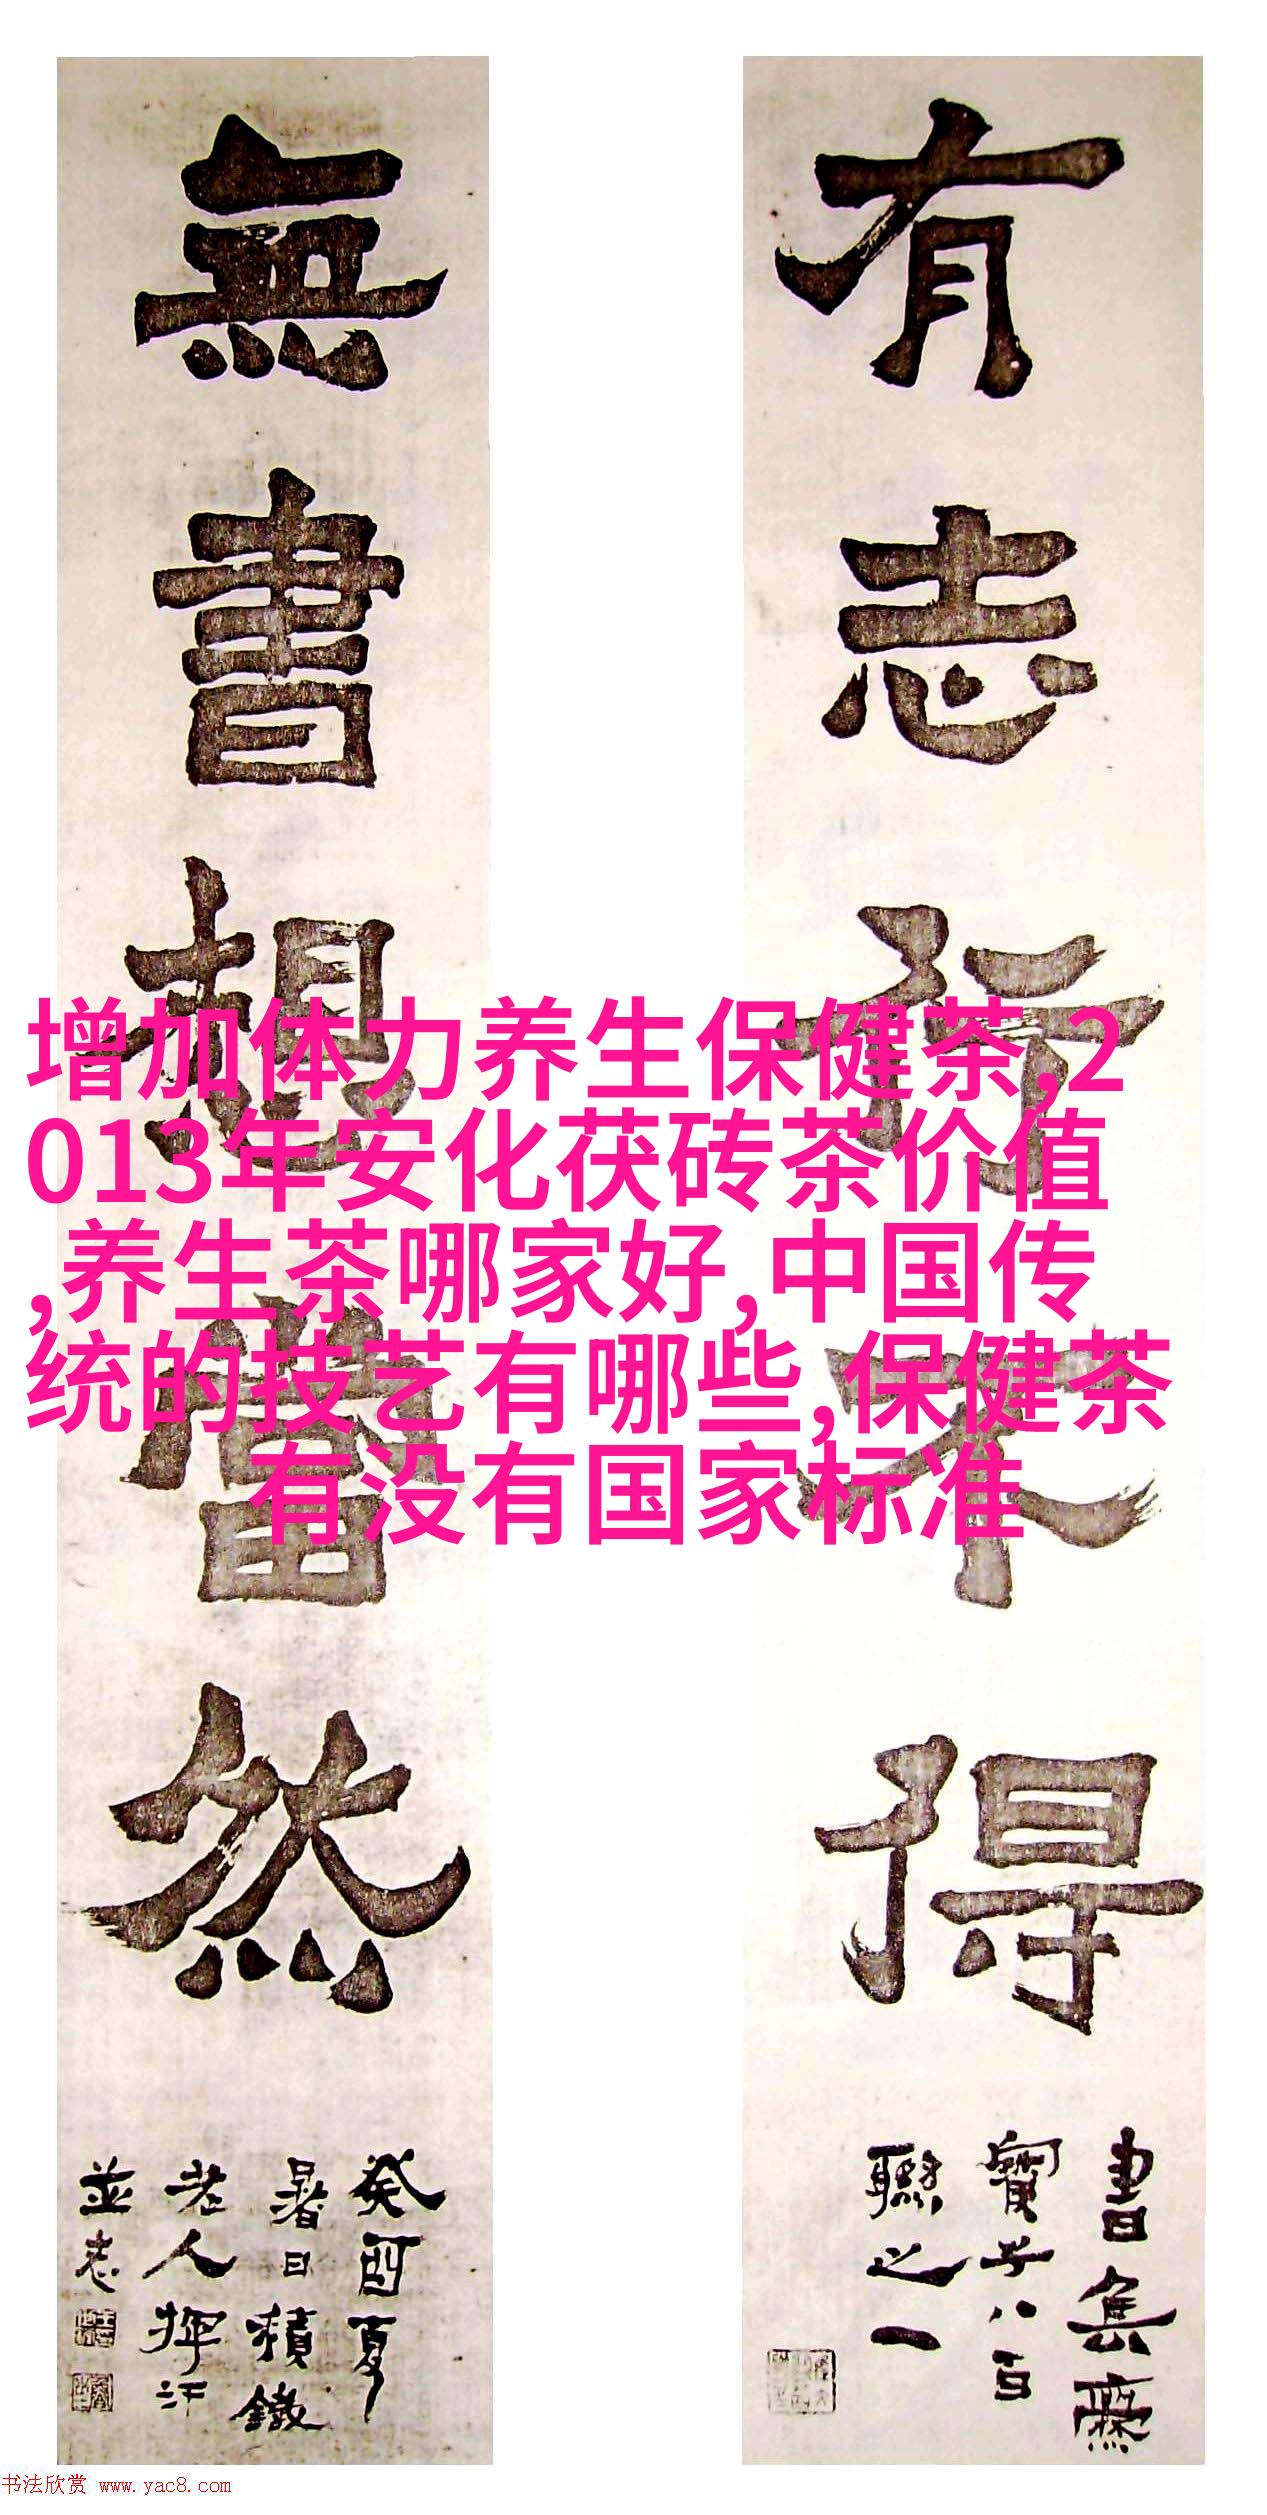 有志行不得
書集
寶子八百
聯之一
無書想當然
癸酉夏
暑日積鐵
老人揮汗
並志
增加体力养生保健茶,2
013年安化茯砖茶价值
,养生茶哪家好,中国传
统的技艺有哪些,保健茶
有没有国家标准
书法欣赏 www.yac8.com